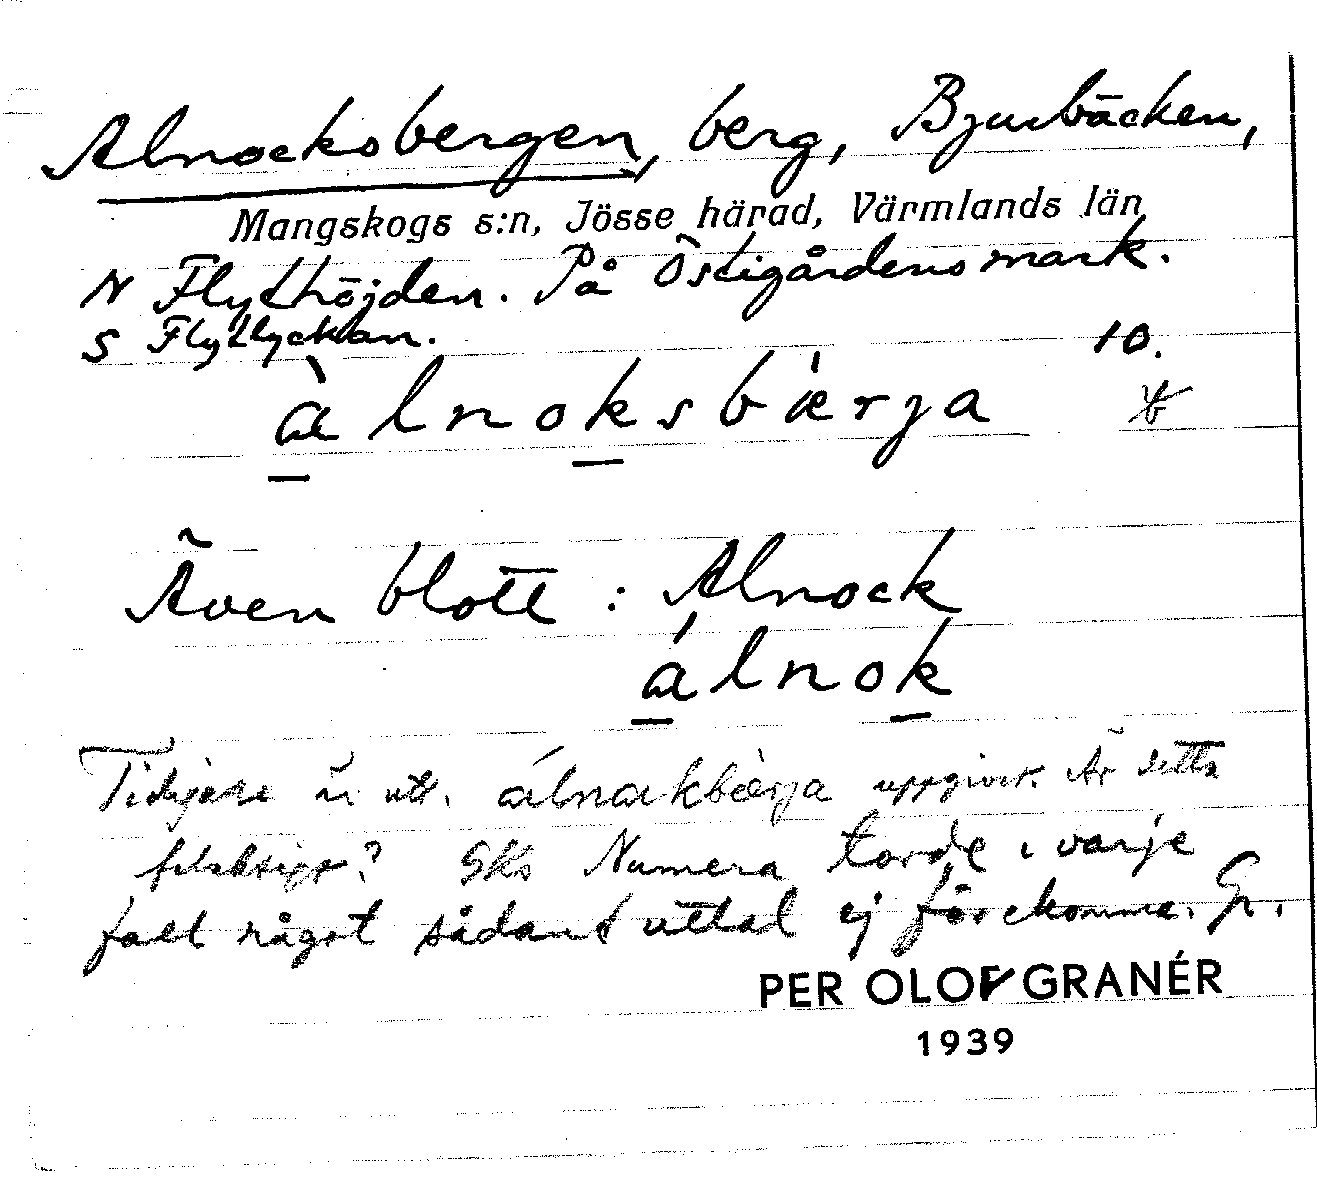 Alnocksbergen, berg, Bjurbäcken,
Mangskogs s:n, Jösse härad, Värmlands län
N Flythöjden. På Östigårdens mark.
S Flytlyckan.
10.
àlnoksbærja
Även blott: Alnock
álnok
Tidigare är utt. álnakbærja uppgivet. Är detta
felaktigt? SKs Numera torde i varje
fall något sådant uttal ej förekomma. Gr.
PER OLOF GRANÉR
1939